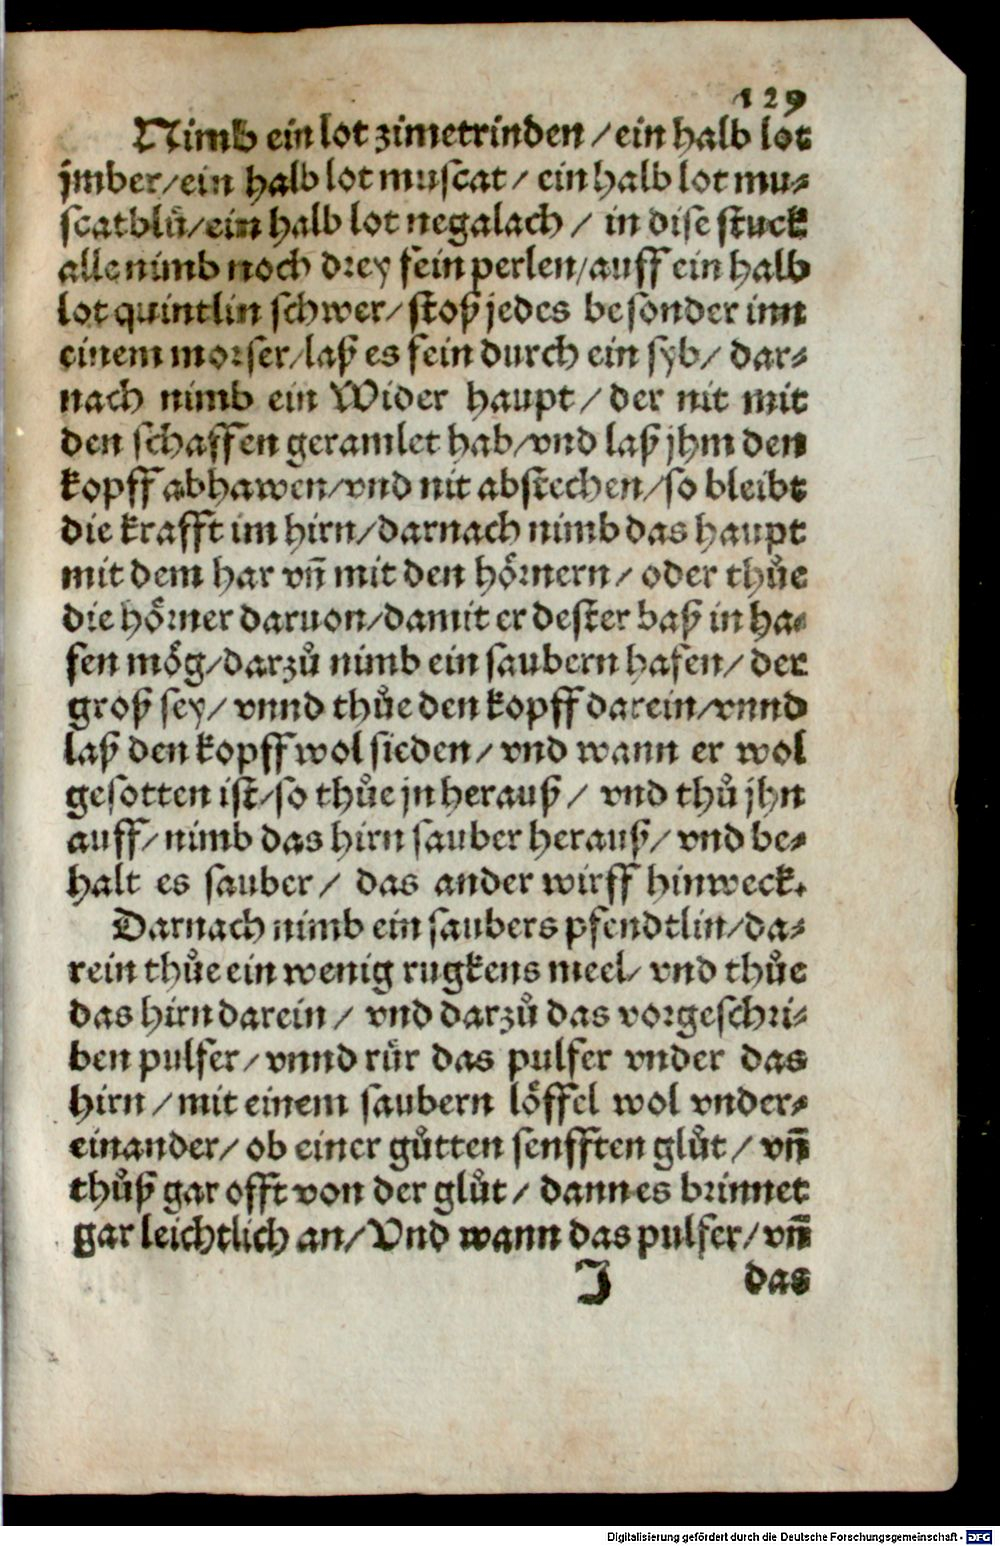 129
Nimb ein lot zimetrinden / ein halb lot
jmber / ein halb lot muscat / ein halb lot mu⸗
scatblů / ein halb lot negalach / in dise stuck
alle nimb noch drey fein perlen / auff ein halb
lot quintlin schwer / stoß jedes besonder inn
einem morser / laß es fein durch ein syb / dar⸗
nach nimb ein Wider haupt / der nit mit
den schaffen geramlet hab / vnd laß jhm den
kopff abhawen / vnd nit abstechen / so bleibt
die krafft im hirn / darnach nimb das haupt
mit dem har vñ mit den hoͤrnern / oder thuͦe
die hoͤrner daruon / damit er dester baß in ha⸗
fen moͤg / darzuͦ nimb ein saubern hafen / der
groß sey / vnnd thuͦe den kopff darein / vnnd
laß den kopff wol sieden / vnd wann er wol
gesotten ist / so thuͦe jn herauß / vnd thuͦ jhn
auff / nimb das hirn sauber herauß / vnd be⸗
halt es sauber / das ander wirff hinweck.
Darnach nimb ein saubers pfendtlin / da⸗
rein thuͦe ein wenig rugkens meel / vnd thuͦe
das hirn darein / vnd darzuͦ das vorgeschri⸗
ben pulfer / vnnd ruͤr das pulfer vnder das
hirn / mit einem saubern loͤffel wol vnder⸗
einander / ob einer guͦtten senfften gluͦt / vñ
thuͦß gar offt von der gluͦt / dann es brinnet
gar leichtlich an / Vnd wann das pulfer / vñ
J das
Digitalisierung gefördert durch die Deutsche Forschungsgemeinschaft - DFG